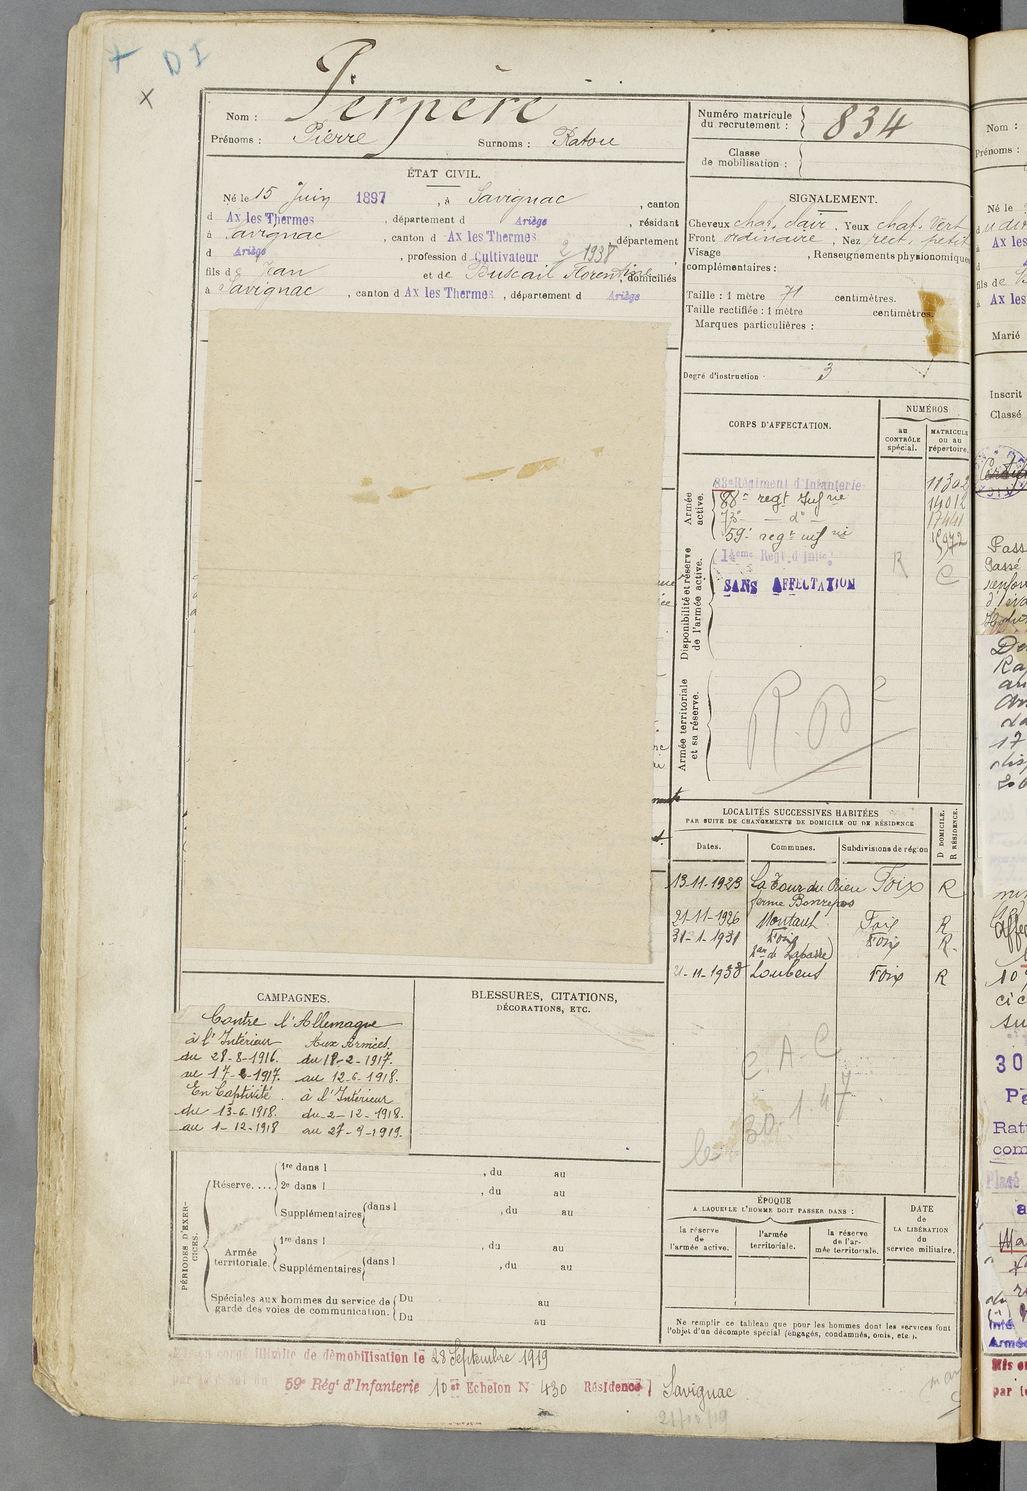 + D I
x
Nom : Perpère
Prénoms : Pierre Surnoms : Ratou
Numéro matricule du recrutement : 834
Classe de mobilisation :
ÉTAT CIVIL.
Né le 15 Juin 1897, à Savignac, canton
d Ax les Thermes, département d Ariège, résidant
à Savignac, canton d Ax les Thermes département
d Ariège, profession d Cultivateur
fils de Jean et de Buscail Florentine, domiciliés
à Savignac, canton d Ax les Thermes, département d Ariège
SIGNALEMENT.
Cheveux chat. clair. Yeux chat. Vert
Front ordinaire. Nez rect. petit
Visage , Renseignements physionomiques
complémentaires :
Taille : 1 mètre 71 centimètres.
Taille rectifiée : 1 mètre centimètres.
Marques particulières :
Degré d'instruction 3
CORPS D'AFFECTATION.
NUMÉROS
au CONTRÔLE spécial.
MATRICULE ou au répertoire.
Armée active.
83e Régiment d'Infanterie 11302
88e regt Infrie 14012
73e — do — 17441
59e regt infrie 15972
Disponibilité et réserve de l'armée active.
14eme Regt d'Infie
R C
SANS AFFECTATION
Armée territoriale et sa réserve.
LOCALITÉS SUCCESSIVES HABITÉES
PAR SUITE DE CHANGEMENTS DE DOMICILE OU DE RÉSIDENCE
D DOMICILE. R RÉSIDENCE.
Dates. Communes. Subdivisions de région
13-11-1923 La Tour du Crieu Foix R
ferme Bonrepos
21-11-1926 Montaut Foix R
31-1-1931 Foix Foix R.
2-11-1938 Loubens Foix R
C A C
le 30.1.47
CAMPAGNES.
Contre l'Allemagne
à l'Intérieur Aux Armées.
du 28-8-1916. du 18-2-1917.
au 17-2-1917. au 12-6-1918.
En Captivité. à l'Intérieur
du 13-6-1918. du 2-12-1918.
au 1-12-1918 au 27-9-1919.
BLESSURES, CITATIONS,
DÉCORATIONS, ETC.
PÉRIODES D'EXERCICES.
Réserve....
1re dans l , du au
2e dans l , du au
Supplémentaires dans l , du au
Armée territoriale.
1re dans l , du au
Supplémentaires dans l , du au
Spéciales aux hommes du service de garde des voies de communication.
Du au
Du au
ÉPOQUE
A LAQUELLE L'HOMME DOIT PASSER DANS :
la réserve de l'armée active.
l'armée territoriale.
la réserve de l'armée territoriale.
DATE de LA LIBÉRATION du service militaire.
Ne remplir ce tableau que pour les hommes dont les services font
l'objet d'un décompte spécial (engagés, condamnés, omis, etc.).
Mis en congé illimité de démobilisation le 28 Septembre 1919
par le dépôt du 59e Régt d'Infanterie 10e Echelon N° 430 Résidence Savignac
Nom :
Prénoms :
Né le
à Ax les
fils de
à Ax les
Marié
Inscrit
Classé